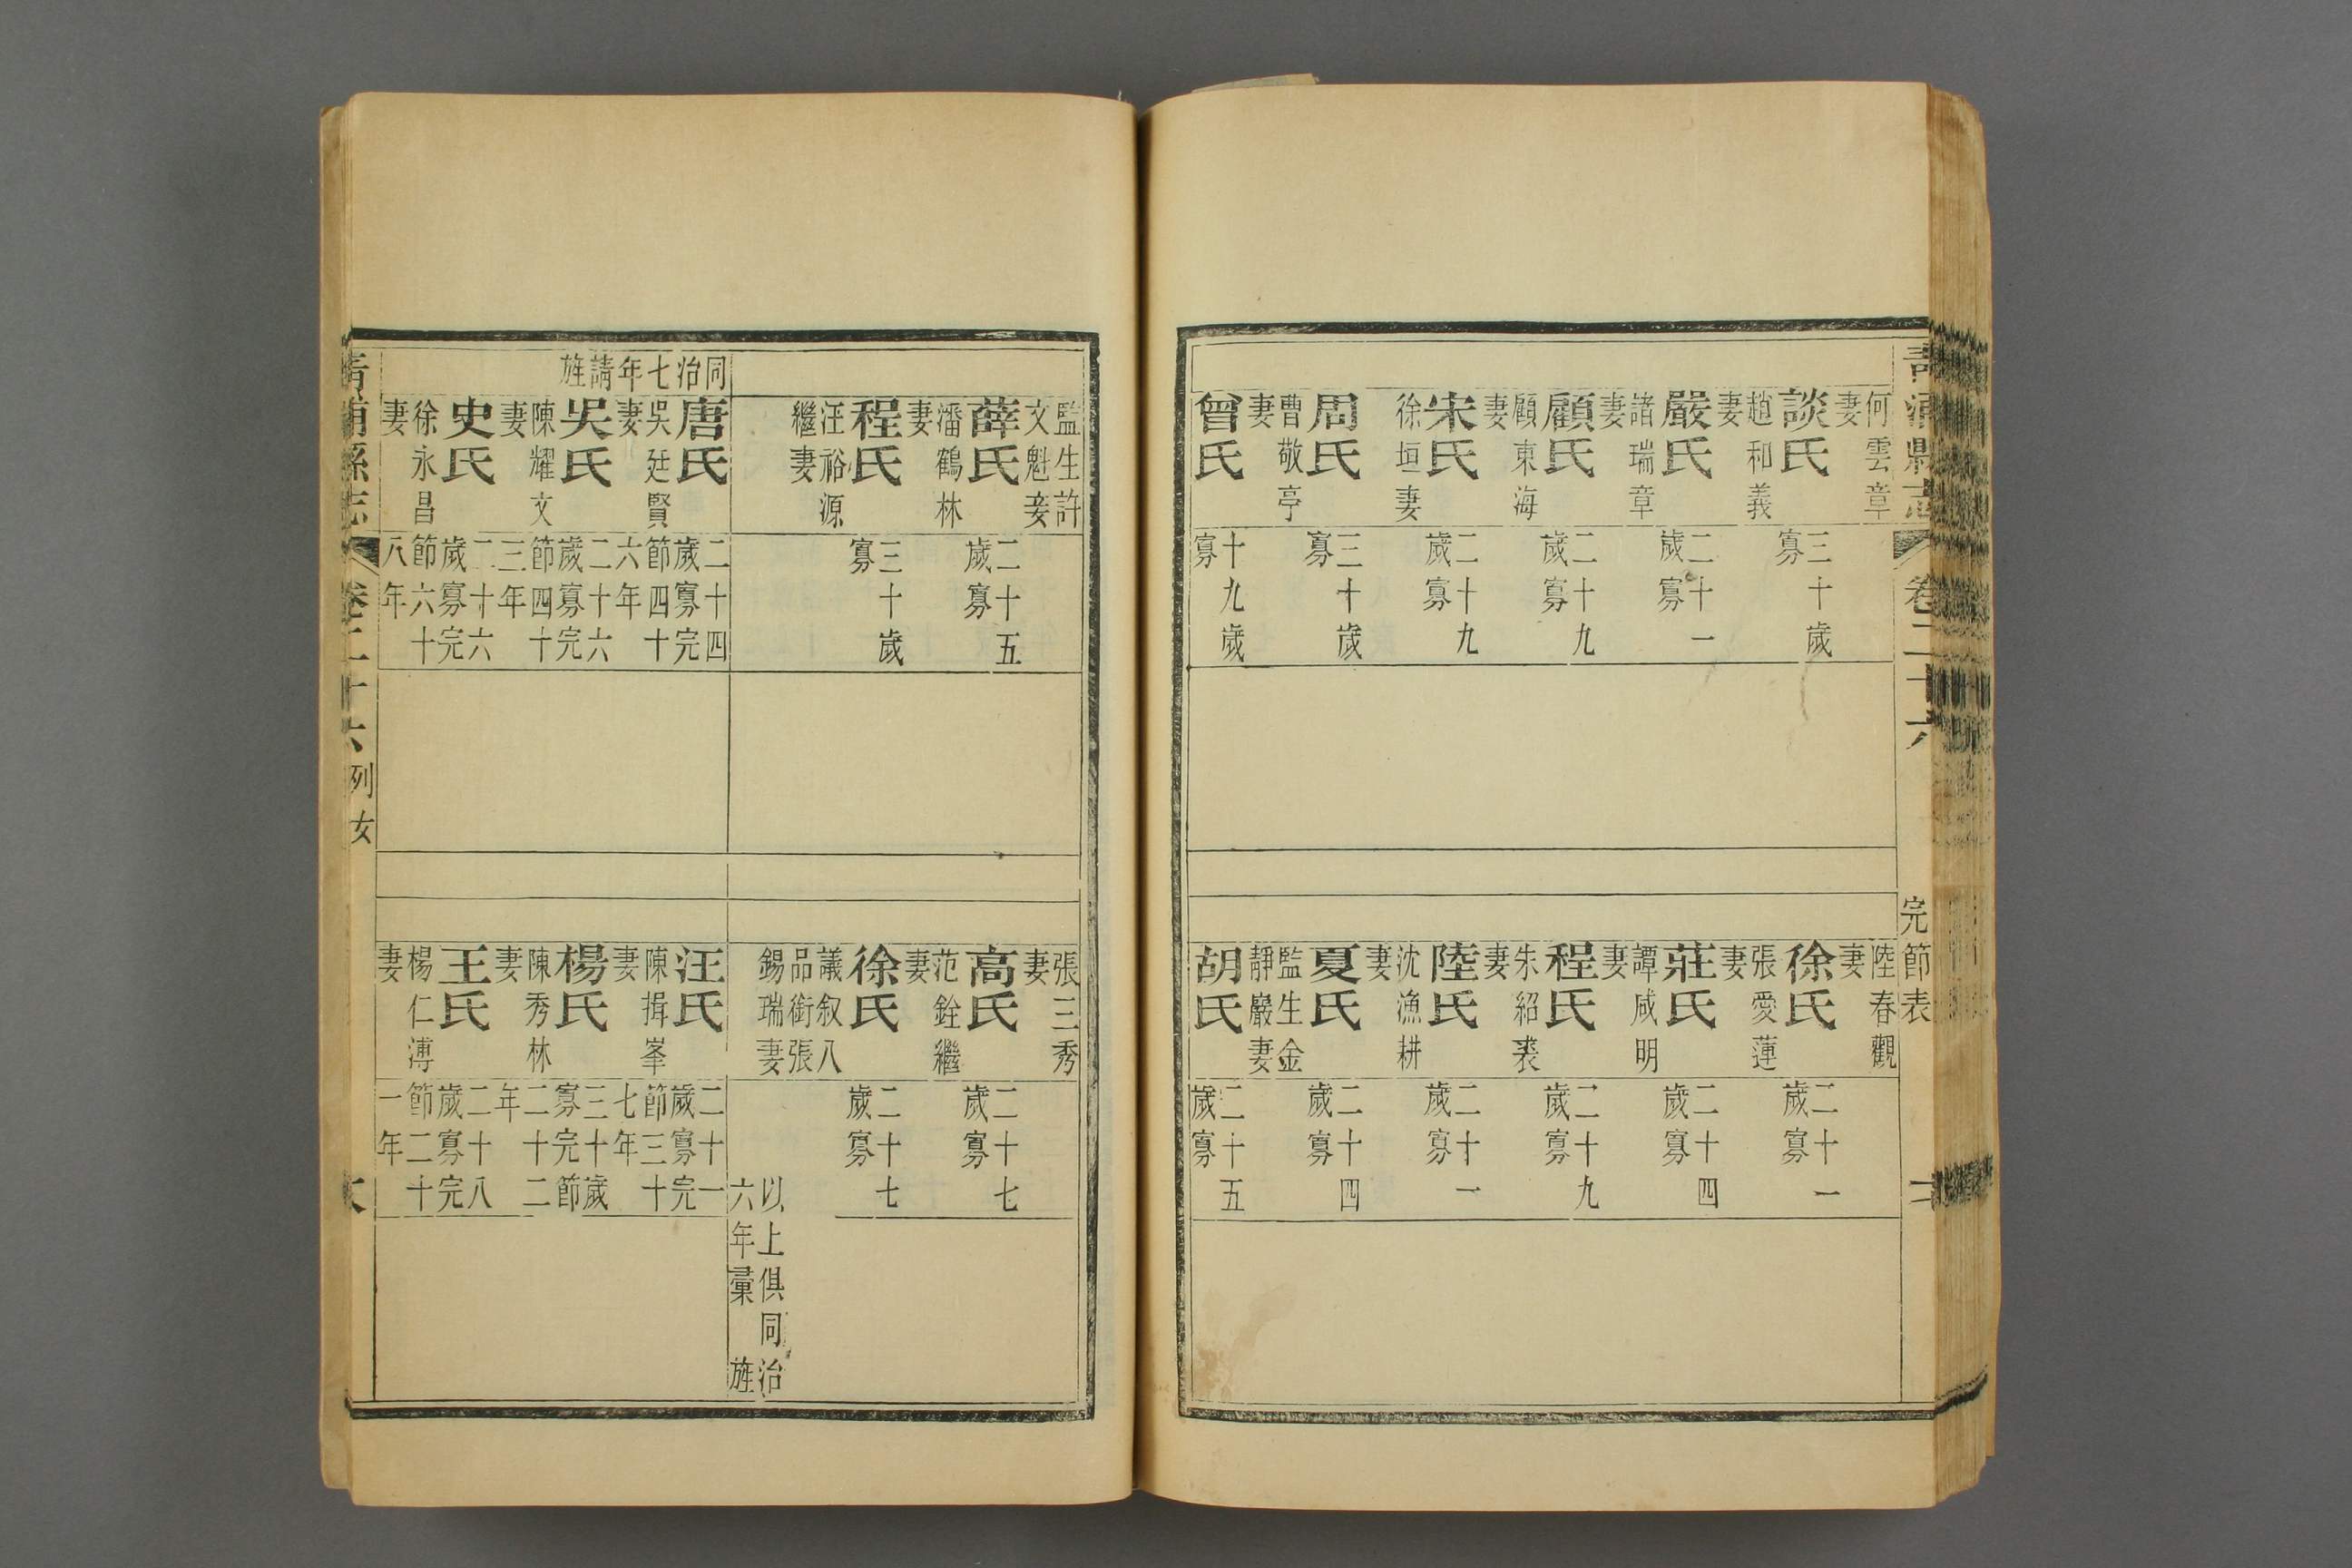 青浦縣志
卷二十六
完節表
何雲章
妻
談氏
趙和義
妻
三十歲
寡
嚴氏
諸瑞章
妻
二十一
歲寡
顧氏
顧東海
妻
二十九
歲寡
宋氏
徐垣妻
二十九
歲寡
周氏
曹敬亭
妻
三十歲
寡
曾氏
十九歲
寡
陸春觀
妻
徐氏
張愛蓮
妻
二十一
歲寡
莊氏
譚咸明
妻
二十四
歲寡
程氏
朱紹裘
妻
二十九
歲寡
陸氏
沈漁耕
妻
二十一
歲寡
夏氏
監生金
靜巖妻
二十四
歲寡
胡氏
二十五
歲寡
監生許
文魁妾
薛氏
潘鶴林
妻
二十五
歲寡
程氏
汪裕源
繼妻
三十歲
寡
張三秀
妻
高氏
范銓繼
妻
二十七
歲寡
徐氏
議叙八
品銜張
錫瑞妻
二十七
歲寡
以上俱同治
六年彙旌
同治七年請旌
唐氏
吳廷賢
妻
二十四
歲寡完
節四十
六年
吳氏
陳耀文
妻
二十六
歲寡完
節四十
三年
史氏
徐永昌
妻
二十六
歲寡完
節六十
八年
汪氏
陳揖峯
妻
二十一
歲寡完
節三十
七年
楊氏
陳秀林
妻
三十歲
寡完節
二十二
年
王氏
楊仁溥
妻
二十八
歲寡完
節二十
一年
青浦縣志
卷二十六
列女